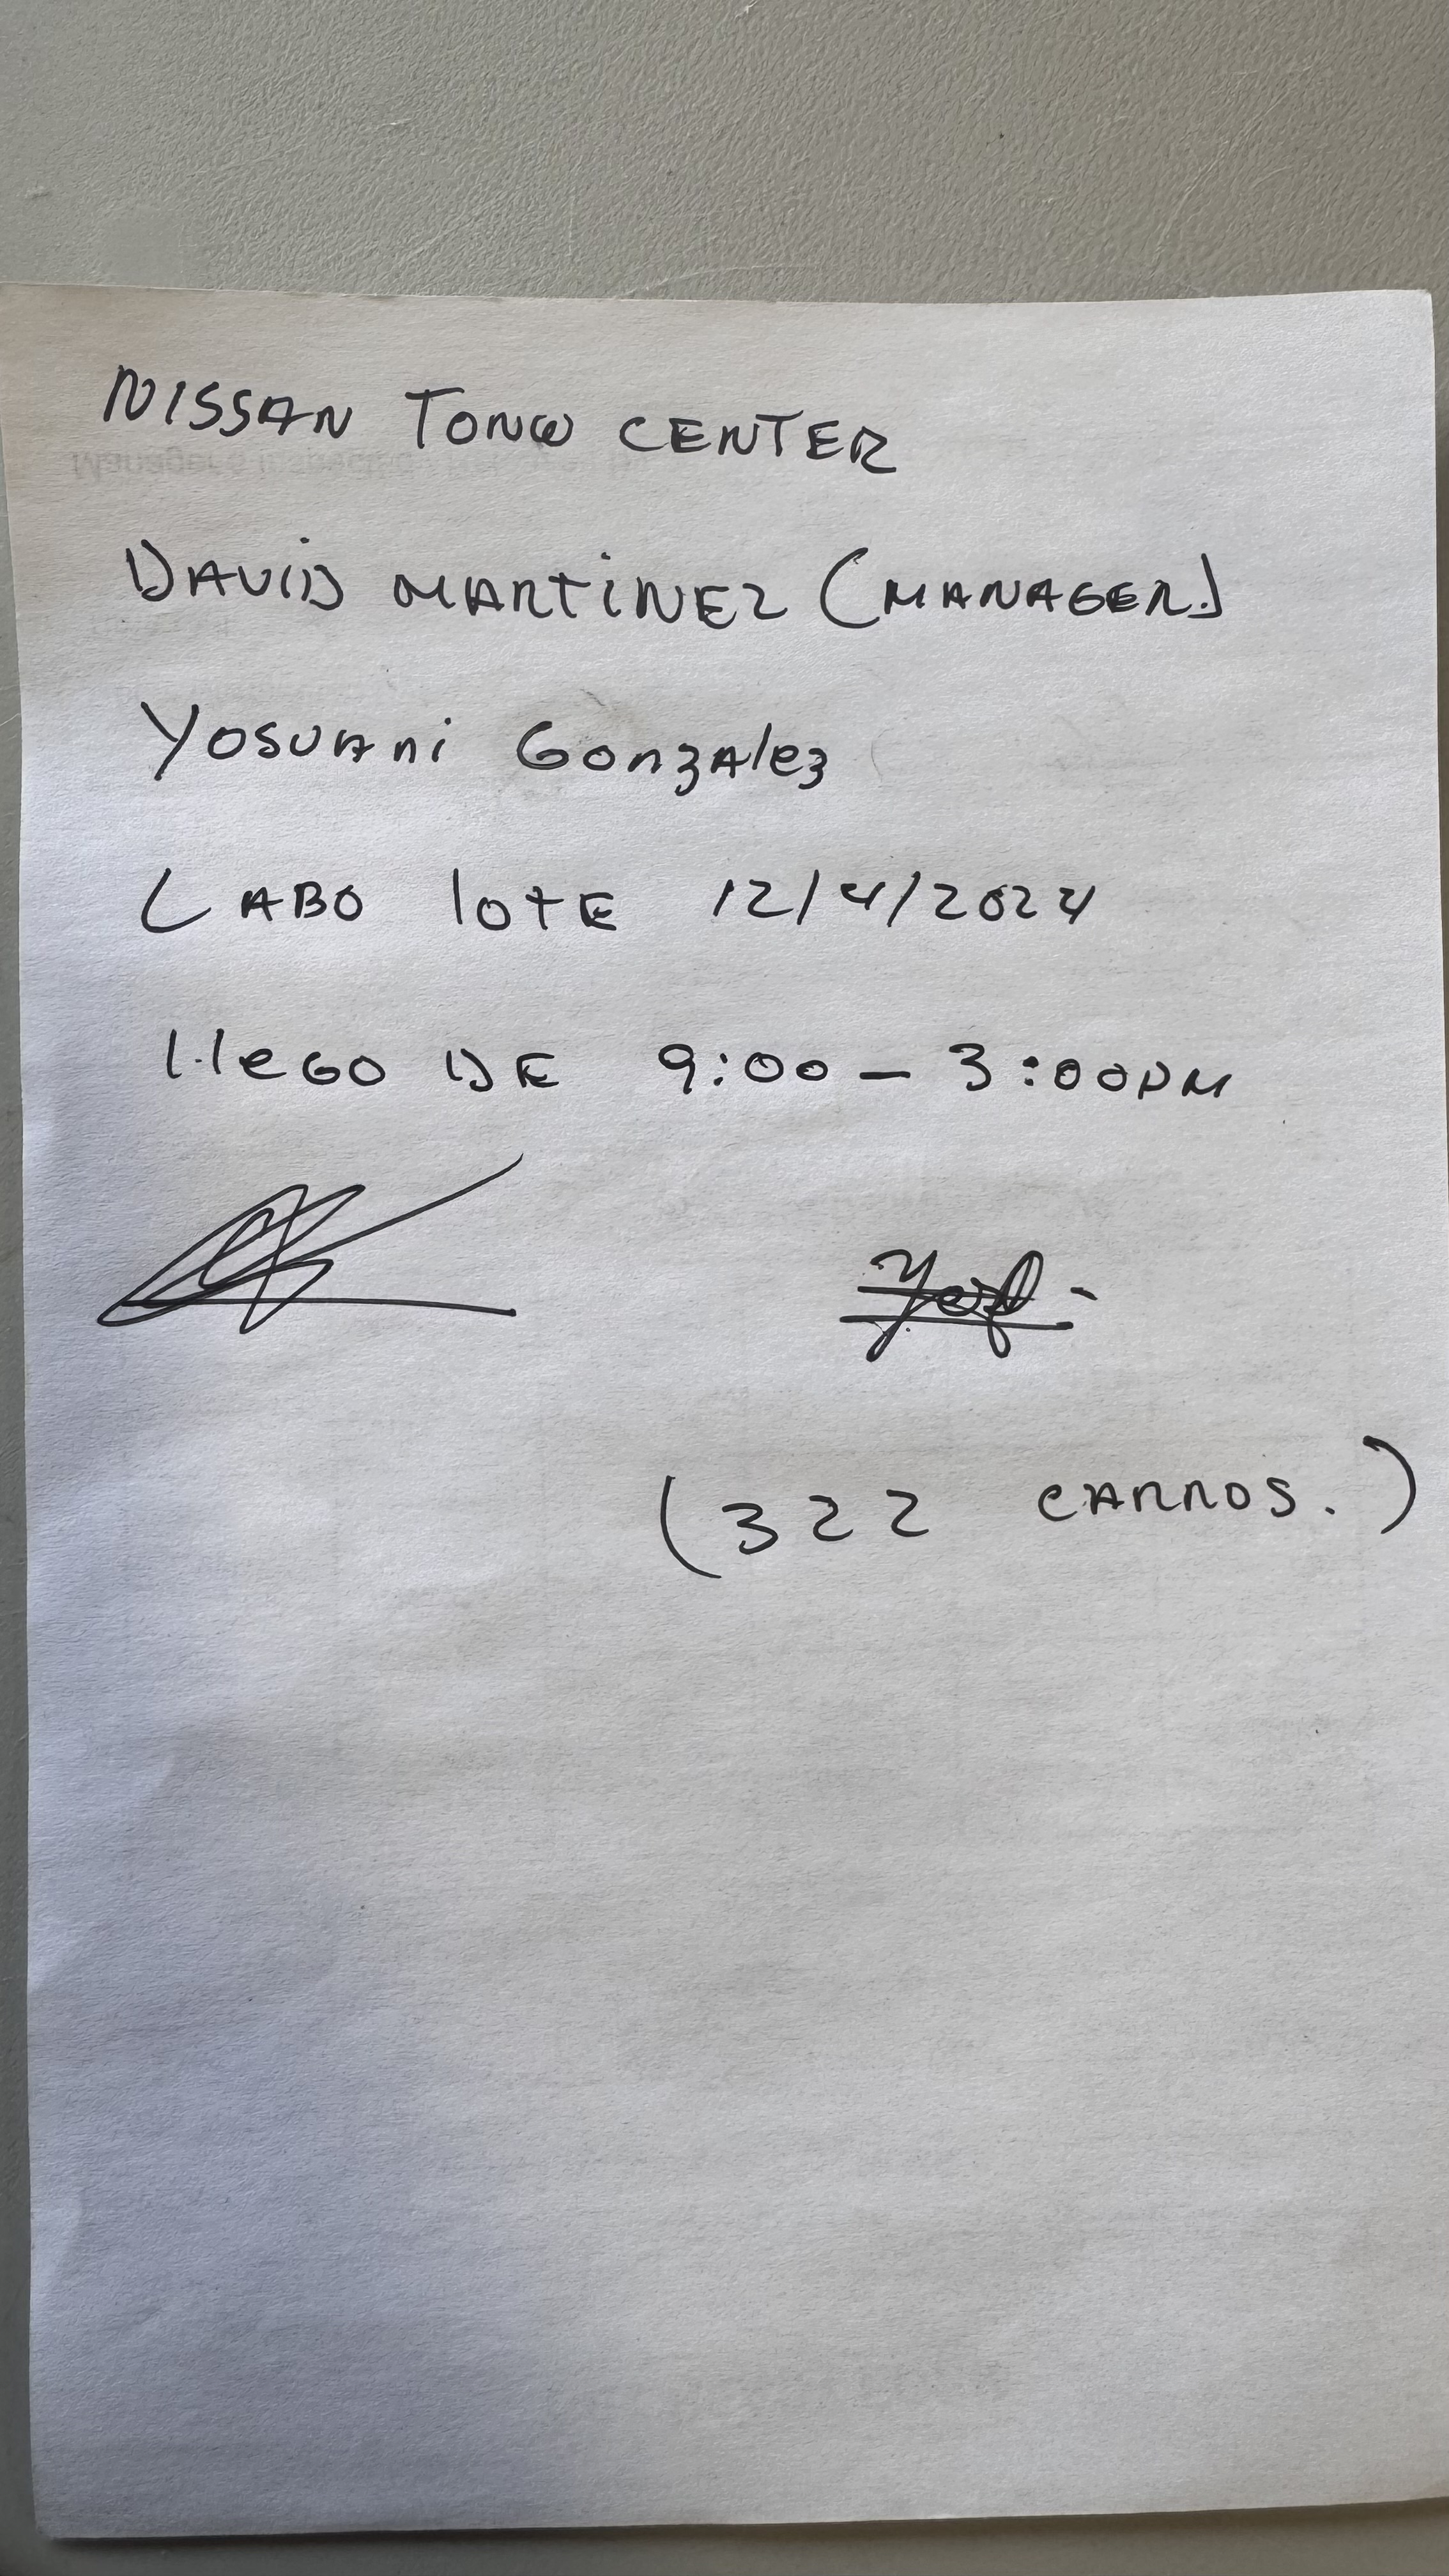 NISSAN TONW CENTER
DAVID MARTINEZ (MANAGER.)
YOSUANI GonzAlez
LABO lOTE 12/4/2024
llEGO DE 9:00 - 3:00PM
(322 CARROS.)